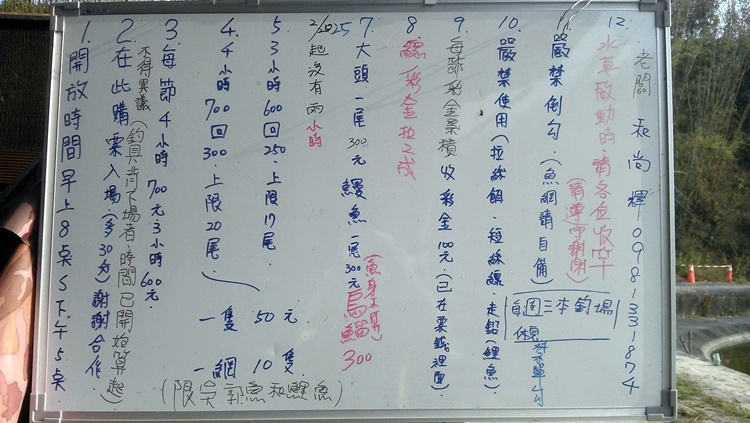 1. 開放時間早上8点5下午5点
2. 在此購票入場(多30分)謝謝合作
不得異議(釣具背下場者,時間已開始算起)
3 每節4小時700元.3小時600元.
4. 4小時700回300.上限20尾.
5. 3小時600回250.上限17尾.
一隻50元
一網10隻
(限吳郭魚和鯉魚)
2/25起沒有兩小時
7 大頭一尾300元 鰻魚一尾300元 烏鰡300
(魚身不算)
8. 總彩金拉2成
9. 每節彩金累積 收彩金100元.(已在票錢裡面)
10. 嚴禁使用(拉絲餌.短絲線.走鉛(鯉魚)
11. 嚴禁倒勾.(魚網請自備)
12. 水草啟動時.請各位收竿
(請遵守謝謝)
每週三本釣場
休息
禁單勾
老闆 袁尚輝 0981331874